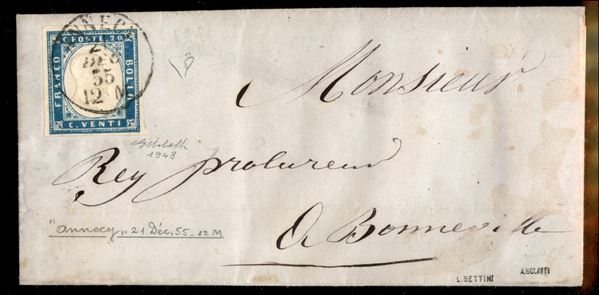 ANNECY
2
DEC
55
12 M
C. POSTE. 20
FRANCO
BOLLO
C. VENTI
Monsieur
1948
Rey procureur
"Annecy" 21 Déc. 55 - 12 M
A Bonneville
L. BETTINI
A. BOLAFFI